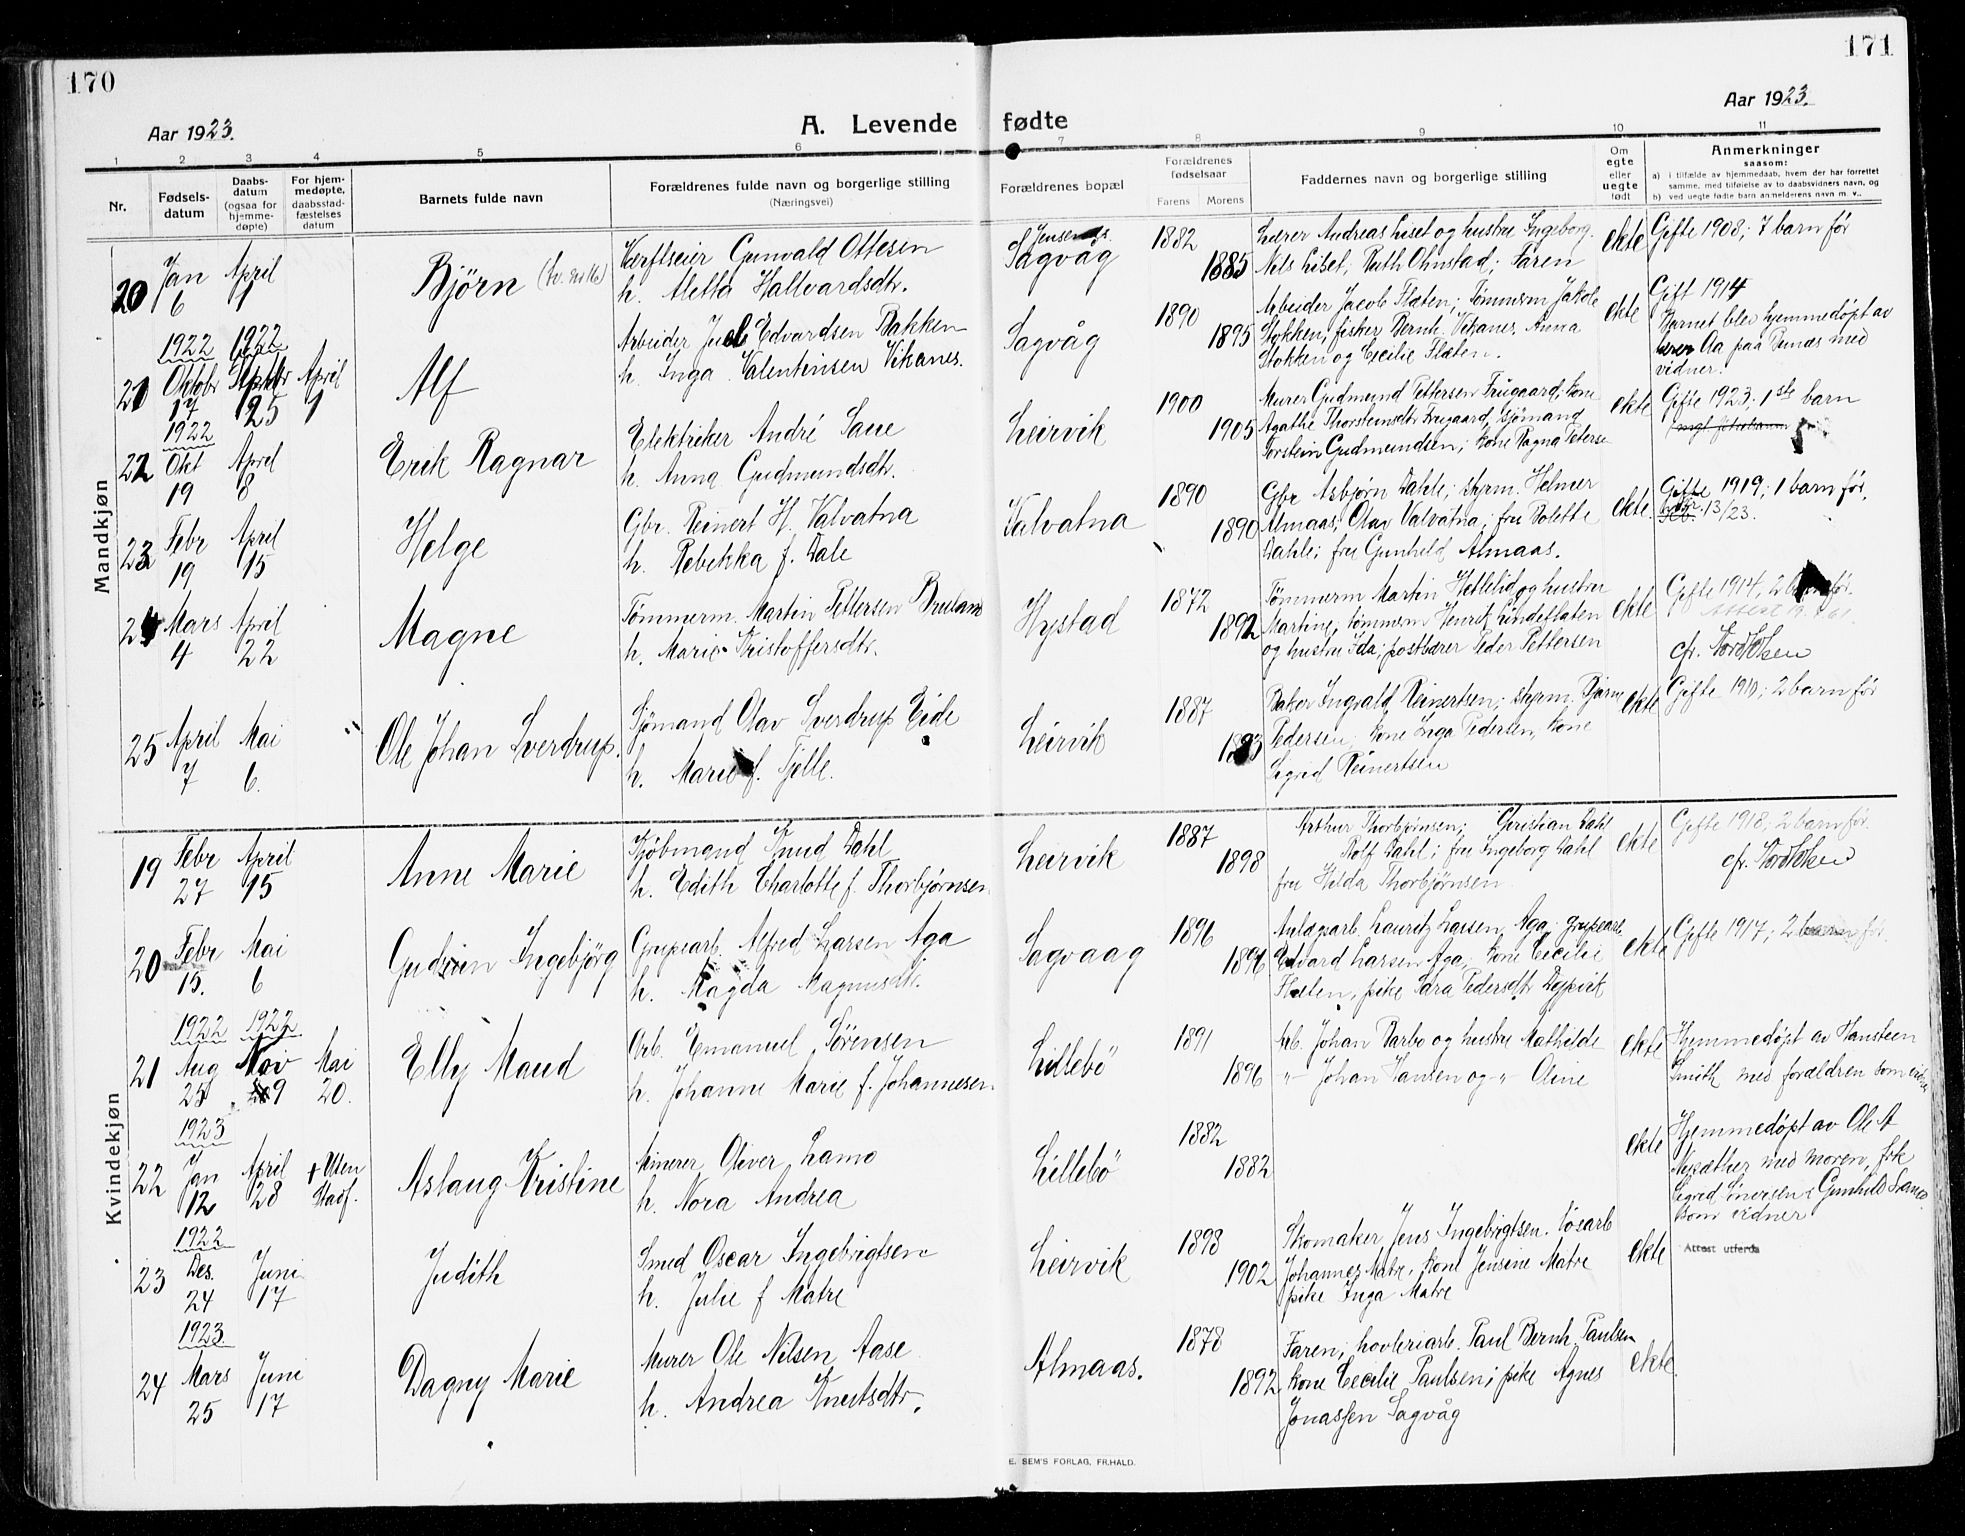 170
Aar 1923.
A. Levende
1 2 3 4 5 6
Nr.
Fødsels-
datum
Daabs-
datum
(ogsaa for
hjemme-
døpte)
For hjem-
medøpte,
daabsstad-
fæstelses
datum
Barnets fulde navn
Forældrenes fulde navn og borgerlige stilling
(Næringsvei)
Mandkjøn
20 Jan 6 April 1 Bjørn
Verftseier Gunvald Ottesen
h. Aletta Hallvardsdtr.
1922 1922
21 Oktobr 17 25 April 1 Alf
Arbeider Edvardsen Bakken
h. Inga Valentinsen Vikanes.
1922
22 Okt 19 April 8 Erik Ragnar
Elektriker André Saue
h. Anna Gudmundsdtr.
23 Febr 19 April 15 Helge
Gbr. Reinert H. Valvatna
h. Rebekka f. Dale
24 Mars 4 April 22 Magne
Tømmerm. Martin Pettersen
h. Marie Kristoffersdtr.
25 April 7 Mai 6. Ole Johan Sverdrup.
Sjømand Olav Sverdrup Eide
h. Marie f. Tjelle.
Kvindekjøn
19 Febr 27 April 15 Anne Marie
Kjøbmand Knud Dahl
h. Edith Charlotte f. Thorbjørnsen
20 Febr 15. Mai 6 Gudrun Ingebjørg
Grupearb. Alfred Larsen Aga
h. Magda Magnusdtr.
1922 1922
21 Aug 25 Nov 9 Mai 20. Elly Maud
Arb. Emanuel Sørensen
h. Johanne Marie f. Johannesen
1923
22 Jan 12 April 28 + Uten Stadf. Aslaug Kristine
Minerer Oliver Lamo
h. Nora Andrea
1922
23 Des. 24 Juni 17 Judith
Smed Oscar Ingebrigtsen
h. Julie f Matre
1923.
24 Mars 25 Juni 17 Dagny Marie
Murer Ole Nilsen Aase
h. Andrea Knutsdtr.
171
Aar 1923.
fødte
7 8 9 10 11
Forældrenes bopæl
Forældrenes
fødselsaar
Farens Morens
Faddernes navn og borgerlige stilling
Om
egte
eller
uegte
født
Anmerkninger
saasom:
a) i tilfælde av hjemmedaab, hvem der har forrettet
samme, med tilføielse av to daabsvidners navn, og
b) ved uegte fødte barn anmelderens navn m. v..
Sagvåg
1882 1885
Lærer Andreas Liset og hustru Ingeborg.
Nils Liset; Ruth Ohnstad; Faren
ekte
Gifte 1908; 7 barn før
Sagvåg
1890 1895
Arbeider Jacob Flæten; Tømmerm Jakob
Stokken, fisker Bernh. Vikanes. Anna
Stokken og Cecilie Flæten.
ekte
Gift 1914
Barnet blev hjemmedøpt av
Aa paa med
vidner.
Leirvik
1900 1905
Murer Gudmund Pettersen Frugaard, kone
Agathe Thorsteinsdtr Frugaard, sjømand
Torstein Gudmundsen; kone Ragna
ekte
Gifte 1923; 1ste barn
Valvatna
1890 1890
Gbr Asbjørn Dahle; styrm. Helmer
Almaas; Olav Valvatna; fru Bolette
Dahle; fru Gunhild Almaas.
ekte.
Gifte 1919; 1 barn før.
13/23.
Hystad
1872 1892
Tømmerm Martin Hettelid og hustru
Martine, tømmerm Henrik Lindeflaten
og hustru Ida; postbærer Peder Pettersen
ekte
Gifte 1914, 2 barn før.
Leirvik
1887 1893
Baker Ingvald Reinertsen; styrm. Bjarne
Pedersen; kone Inga Pedersen, kone
Sigrid Reinertsen
ekte
Gifte 1910; 2 barn før
Leirvik
1887 1898
Arthur Thorbjørnsen; Christian Dahl
Rolf Dahl; fru Ingeborg Dahl
fru Hilda Thorbjørnsen
ekte
Gifte 1918, 2 barn før.
Sagvaag
1896 1896
Anlægsarb. Lauritz Larsen Aga, grupearb
Edvard Larsen Aga; kone Cecilie
pike Sara Pedersdtr Dypvik
ekte
Gifte 1917; 2 barn før.
Lillebö
1891 1896
Arb. Johan Barbo og hustru Mathilde
-"- Johan Hansen og -"- Oline
ekte
Hjemmedøpt av Hansteen
Smith med forældren som
Lillebö
1882 1882
ekte
Hjemmedøpt av Ole A
med moren, frk
Sigred og Gunhild Lamo
som vidner
Leirvik
1898 1902
Skomaker Jens Ingebrigtsen. løsarb
Johannes Matre, kone Jensine Matre
pike Inga Matre
ekte
Attest utferda
Almaas.
1878 1892
Faren; høvleriarb. Paul Bernh. Paulsen
kone Cecilie Paulsen; pike Agnes
Jonassen Sagvåg
ekte.
E. SEM'S FORLAG, FR.HALD.